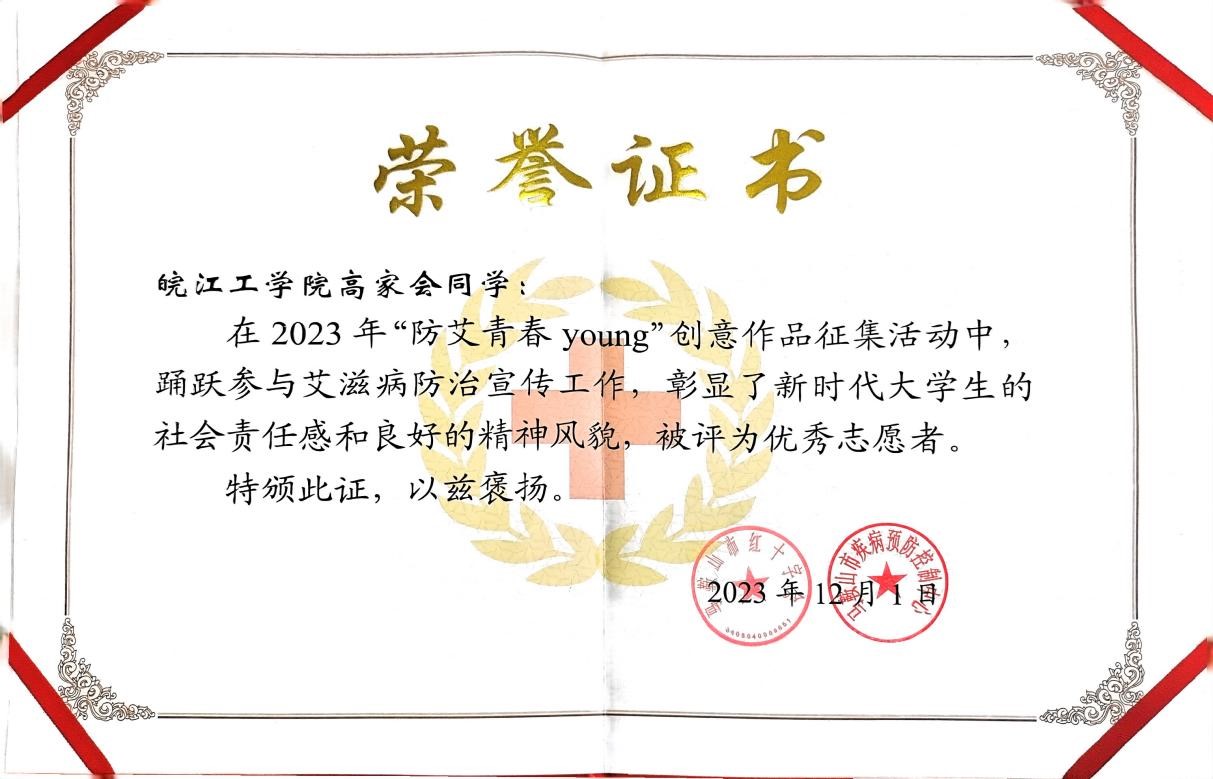 荣誉证书
皖江工学院高家会同学：
在 2023 年“防艾青春 young”创意作品征集活动中，
踊跃参与艾滋病防治宣传工作，彰显了新时代大学生的
社会责任感和良好的精神风貌，被评为优秀志愿者。
特颁此证，以兹褒扬。
马鞍山市红十字会
马鞍山市疾病预防控制中心
2023 年 12 月 1 日